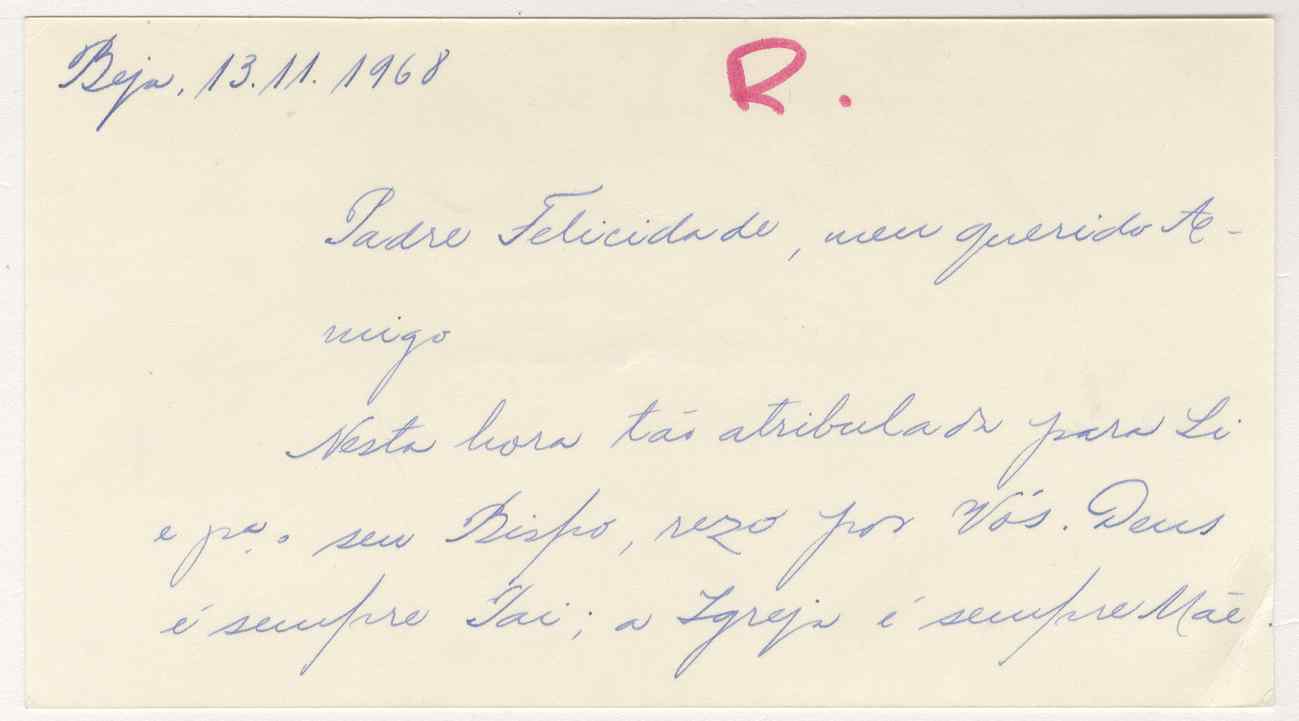 Beja, 13.11.1968
R.
Padre Felicidade, meu querido A-
migo
Nesta hora tão atribulada para Si
e pª o seu Bispo, rezo por Vós. Deus
é sempre Pai; a Igreja é sempre Mãe.